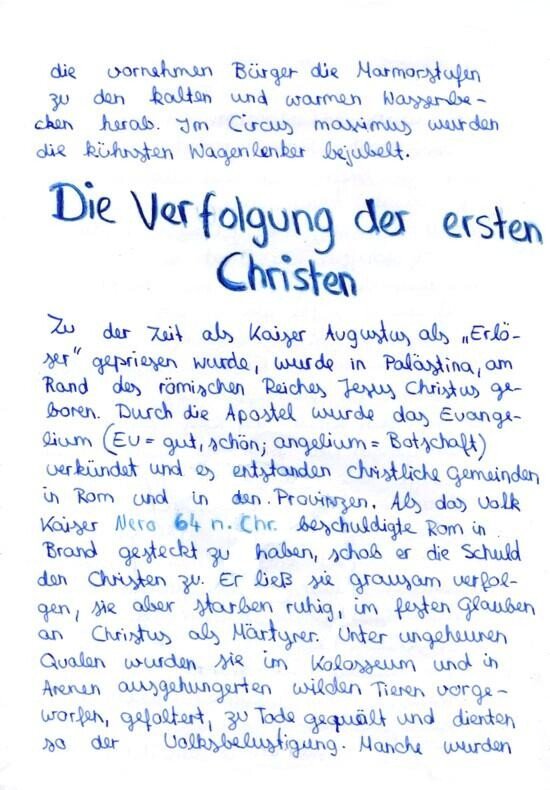 die vornehmen Bürger die Marmorstufen
zu den kalten und warmen Wasserbe-
cken herab. Im Circus maximus wurden
die kühnsten Wagenlenker bejubelt.
Die Verfolgung der ersten
Christen
Zu der Zeit als Kaiser Augustus als „Erlö-
ser" gepriesen wurde, wurde in Palästina, am
Rand des römischen Reiches Jesus Christus ge-
boren. Durch die Apostel wurde das Evange-
lium (Eu = gut, schön; angelium = Botschaft)
verkündet und es entstanden christliche Gemeinden
in Rom und in den Provinzen. Als das Volk
Kaiser Nero 64 n. Chr. beschuldigte Rom in
Brand gesteckt zu haben, schob er die Schuld
den Christen zu. Er ließ sie grausam verfol-
gen, sie aber starben ruhig, im festen Glauben
an Christus als Märtyrer. Unter ungeheuren
Qualen wurden sie im Kolosseum und in
Arenen ausgehungerten wilden Tieren vorge-
worfen, gefoltert, zu Tode gequält und dienten
so der Volksbelustigung. Manche wurden